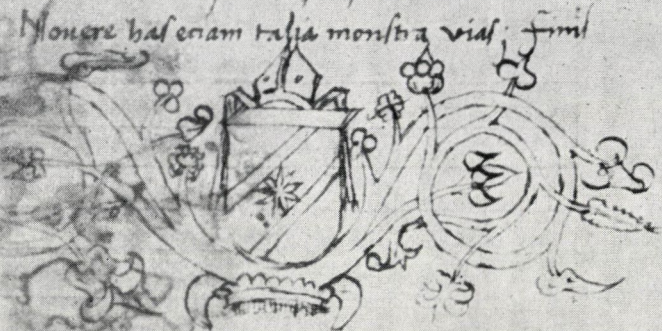 Novere has eciam talia monstra vias. Finis